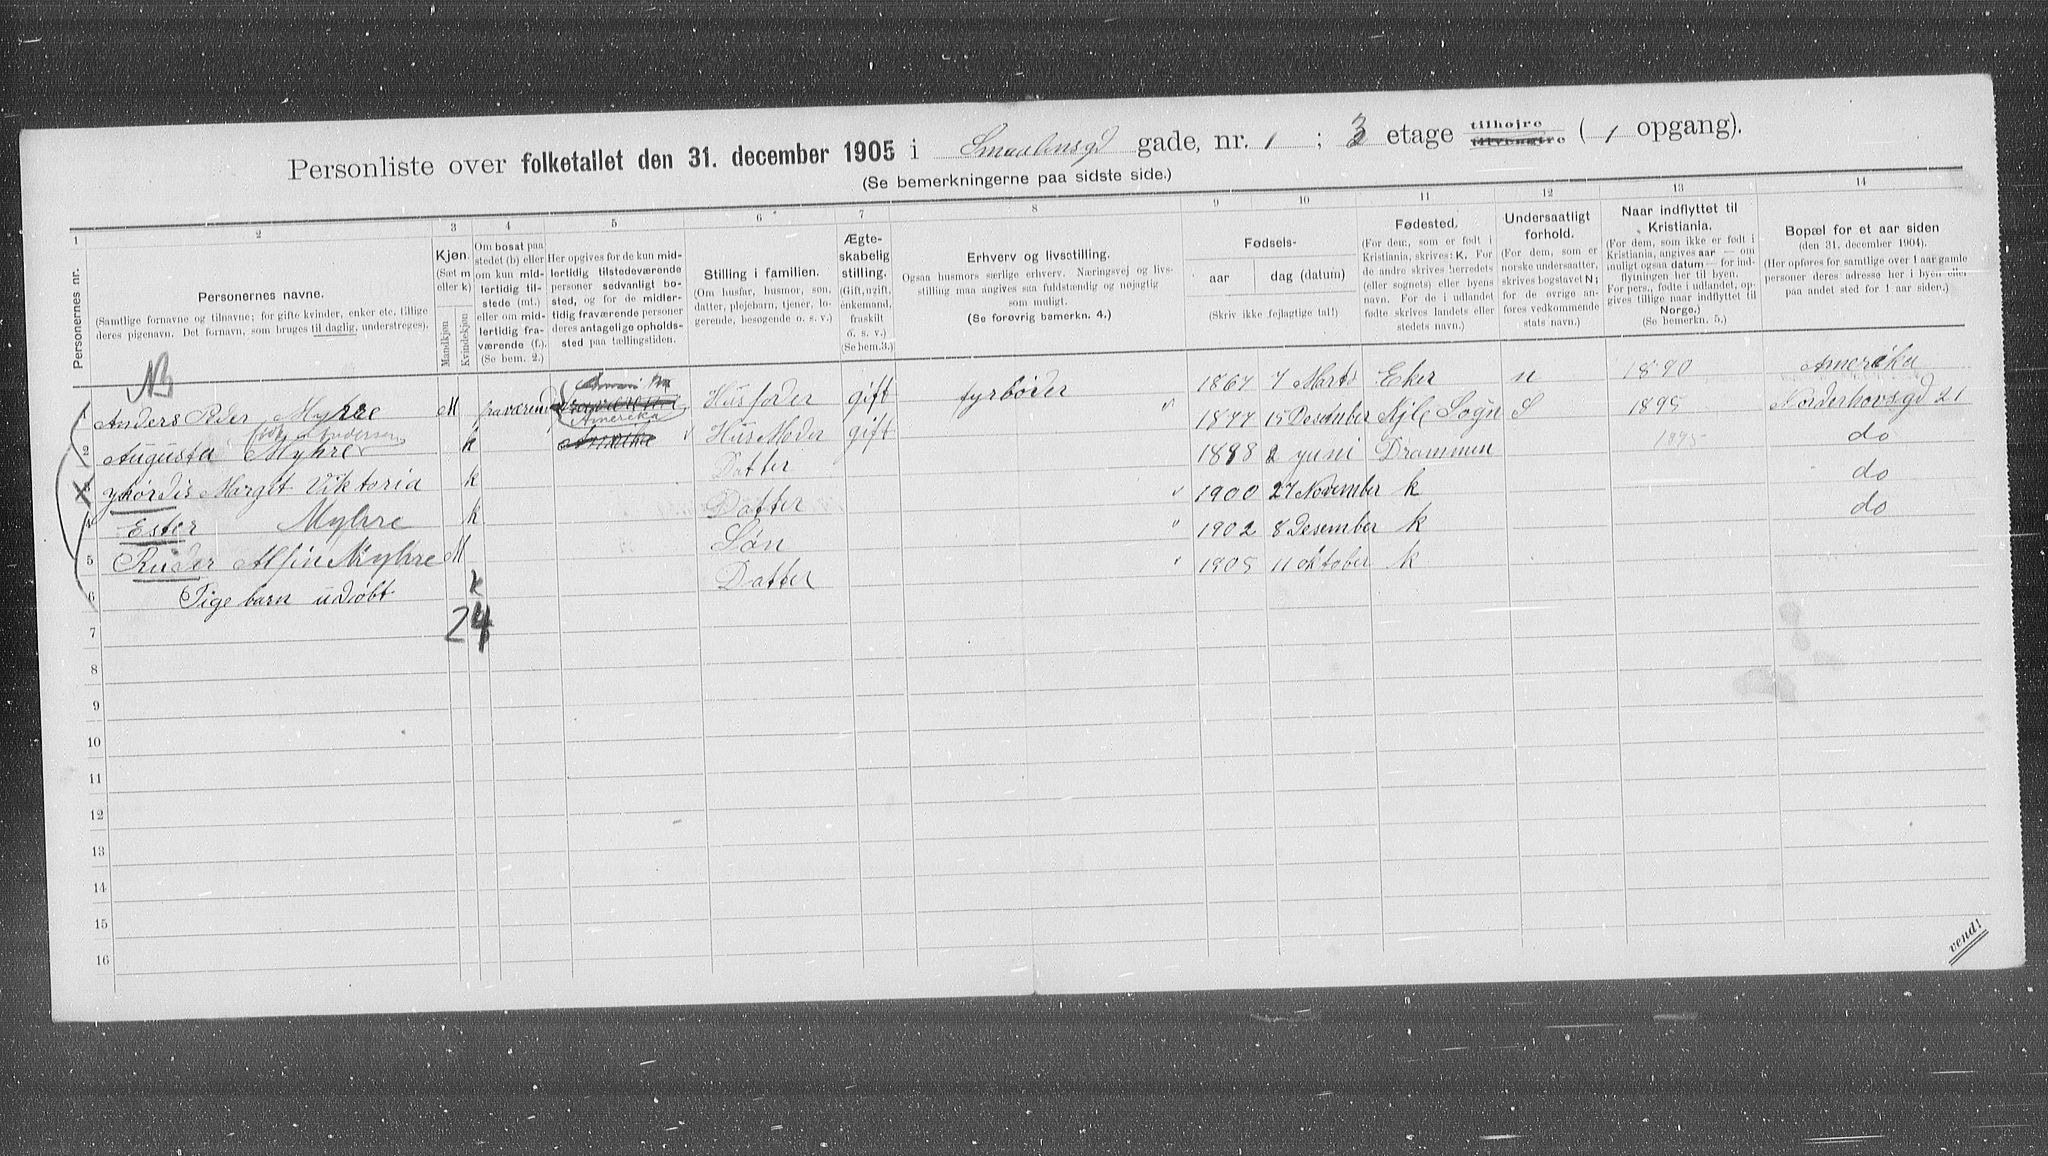 Personliste over folketallet den 31. december 1905 i Smaalensgd gade, nr. 1 ; 3 etage tilhøjre tilvenstre ( 1 opgang).
(Se bemerkningerne paa sidste side.)
1 2 3 4 5 6 7 8 9 10 11 12 13 14
Personernes nr.
Personernes navne.
(Samtlige fornavne og tilnavne; for gifte kvinder, enker etc. tillige
deres pigenavn. Det fornavn, som bruges til daglig, understreges).
Kjøn.
(Sæt m
eller k)
Mandkjøn
Kvindekjøn
Om bosat paa
stedet (b) eller
om kun mid-
lertidig til-
stede (mt.)
eller om mid-
lertidig fra-
værende (f.).
(Se bem. 2.)
Her opgives for de kun mid-
lertidig tilstedeværende
personer sedvanlig bo-
sted, og for de midler-
tidig fraværende personer
deres antagelige opholds-
sted paa tællingstiden.
Stilling i familien.
(Om husfar, husmor, søn,
datter, plejebarn, tjener, lo-
gerende, besøgende o. s. v.)
Ægte-
skabelig
stilling.
(Gift, ugift,
enkemand,
fraskilt
o. s. v.)
(Se bem. 3.)
Erhverv og livsstilling.
Ogsaa husmors særlige erhverv. Næringsvej og livs-
stilling maa angives saa fuldstændig og nøjagtig
som muligt.
(Se forøvrig bemerkn. 4.)
Fødsels-
aar dag (datum)
(Skriv ikke fejlagtige tal!)
Fødested.
(For dem, som er født i
Kristiania, skrives: K. For
de andre skrives herredets
(eller sognets) eller byens
navn. For de i udlandet
fødte skrives landets eller
stedets navn.)
Undersaatligt
forhold.
(For dem, som er
norske undersaatter,
skrives bogstavet N;
for de øvrige an-
føres vedkommende
stats navn.)
Naar indflyttet til
Kristiania.
(For dem, som ikke er født i
Kristiania, angives aar — om
muligt ogsaa datum — for ind-
flyningen her til byen.
For pers., fødte i udlandet, op-
gives tillige naar indflyttet til
Norge.)
(Se bemerkn. 5.)
Bopæl for et aar siden
(den 31. december 1904).
(Her opføres for samtlige over 1 aar gamle
personer deres adresse her i byen eller
paa andet sted for 1 aar siden.)
NB
1 Anders Peder Myhre M fraværend Amerika Husfader gift fyrbøder 1867 7 Marts Eker n 1890 Amerika
2 Augusta Myhre k Hus Moder gift " 1877 15 Desember Sogn S 1895 Norderhovsgd 21
3 Margit Viktoria k Datter 1898 2 yuni Drammen 1895 do
4 Ester Myhre k Datter " 1900 27 November k do
5 Reidar Myhre M Søn " 1902 8 Desember k do
6 Pige barn udøbt k Datter " 1905 11 oktober k
24
7
8
9
10
11
12
13
14
15
16
vend!